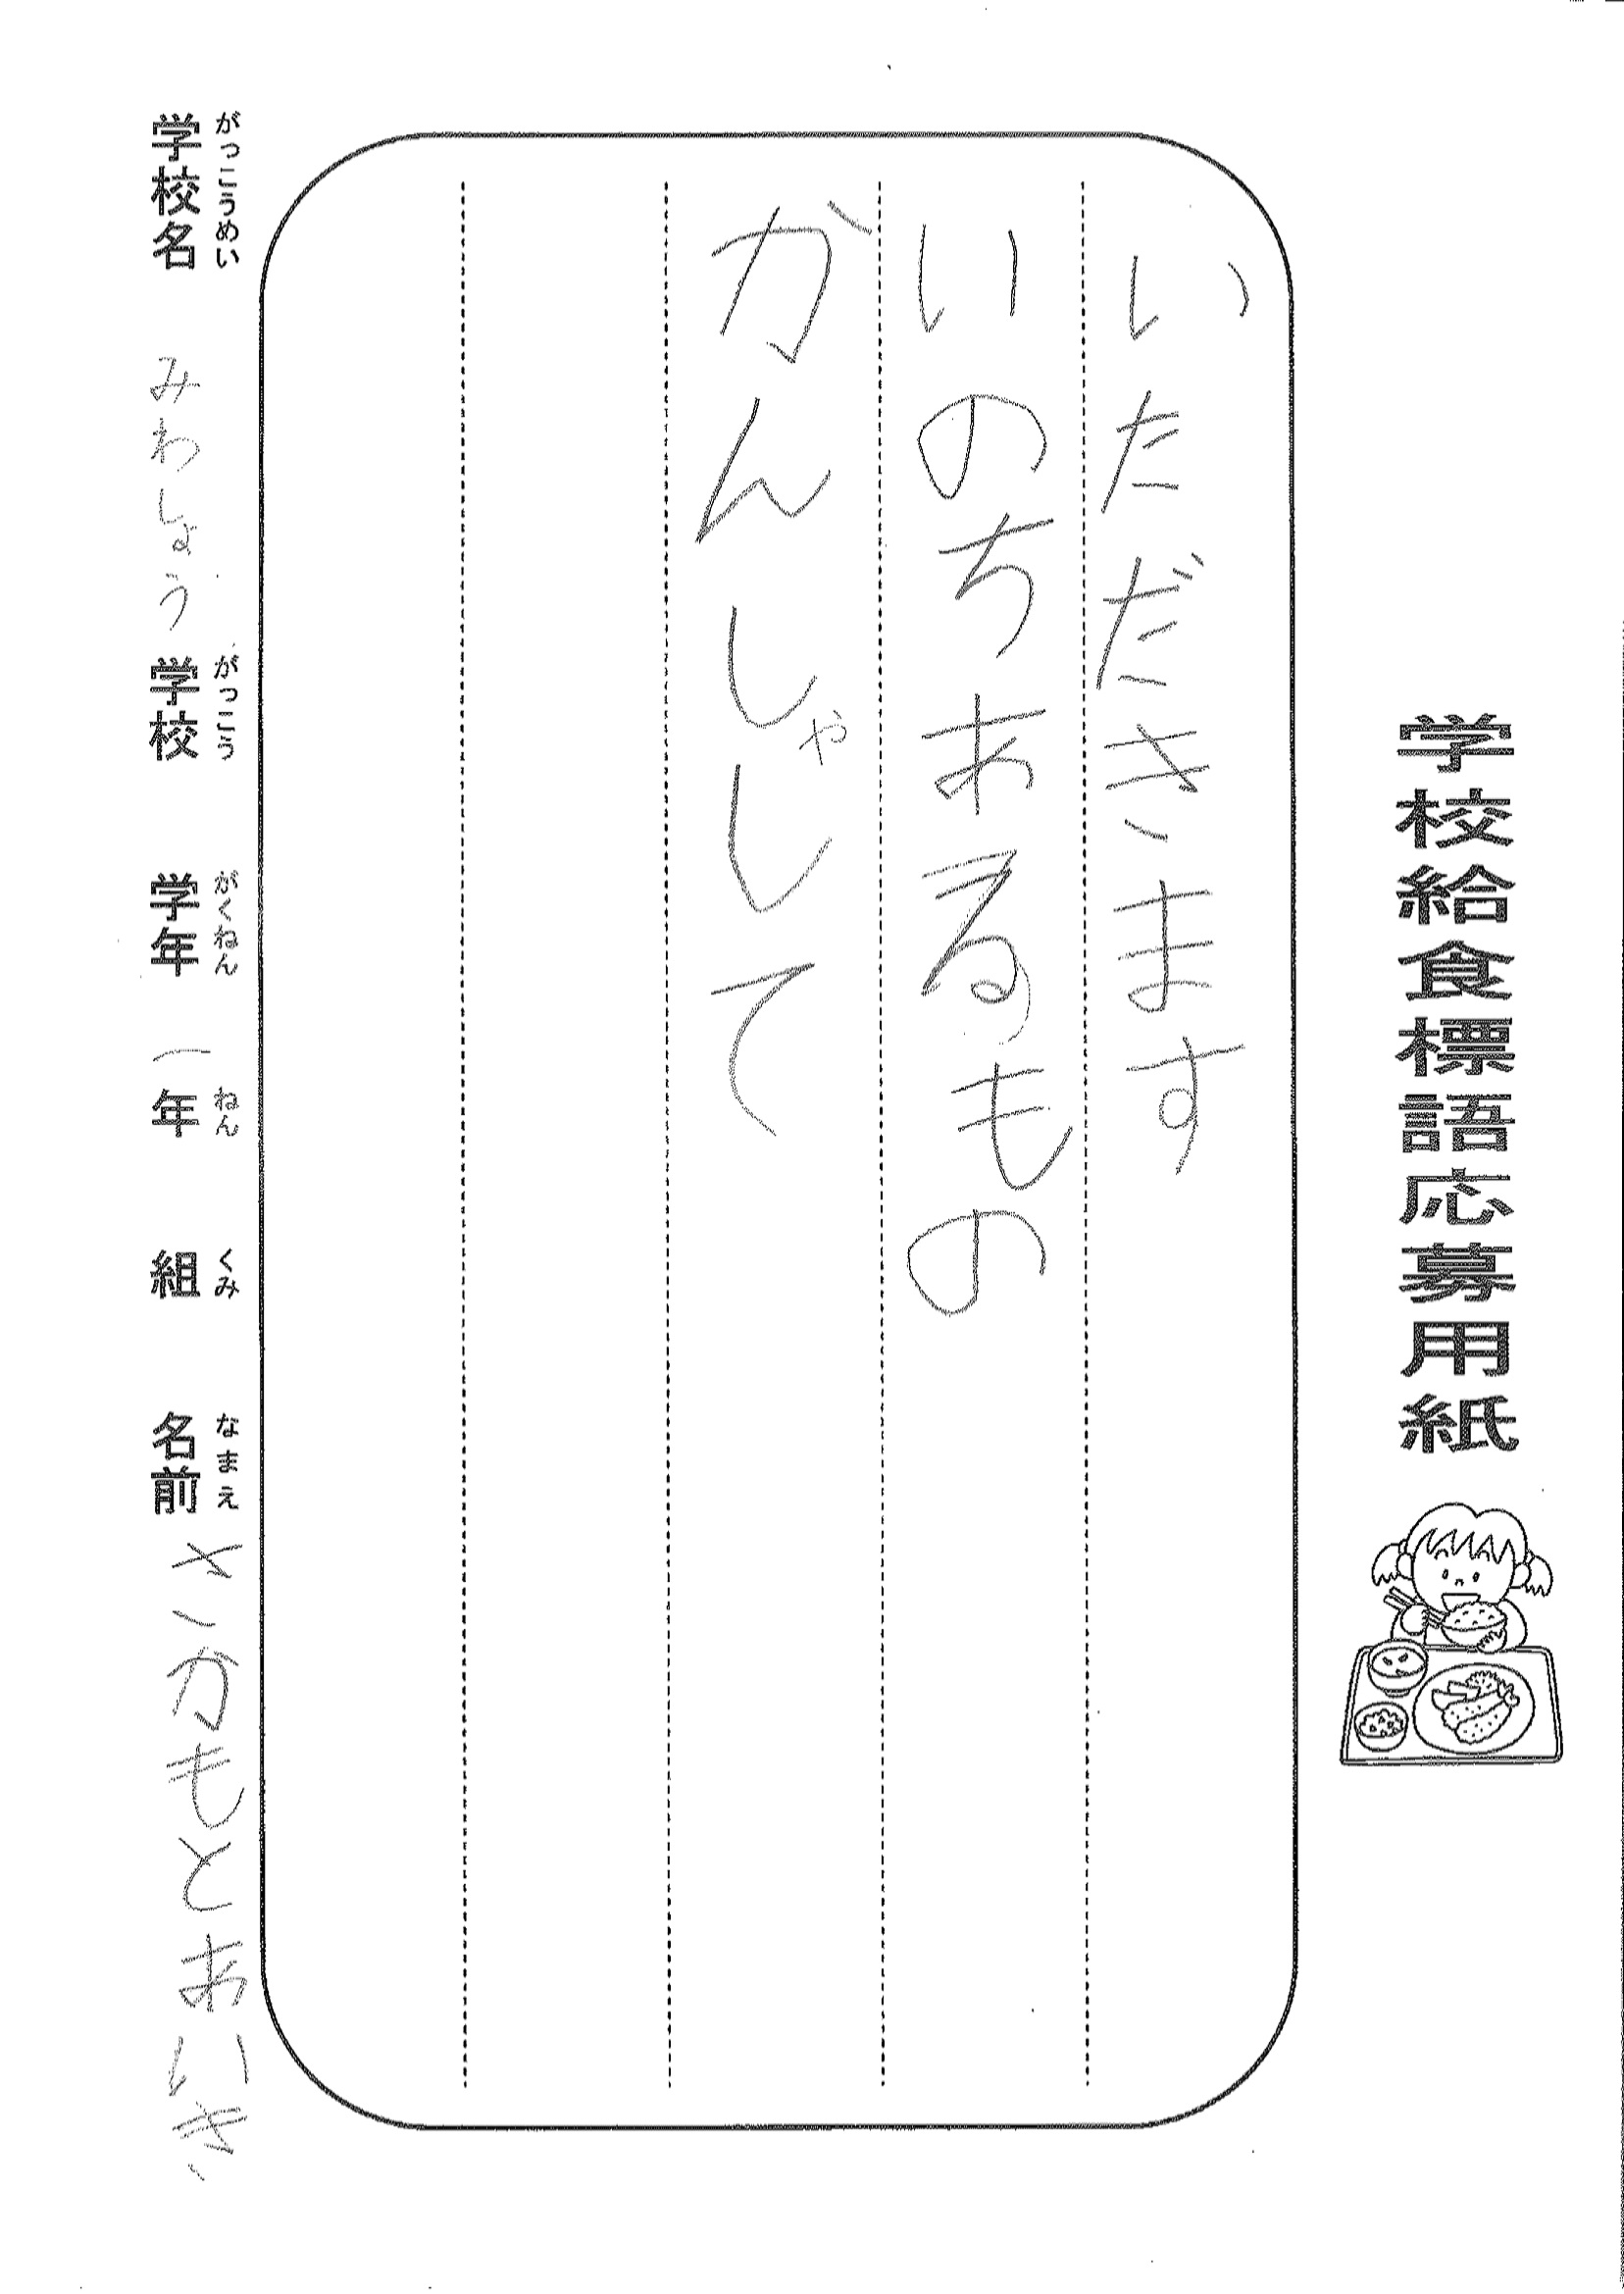 学校給食標語応募用紙
いただきます
いのちあるもの
かんしゃして
がっこうめい がっこう がくねん ねん くみ なまえ
学校名 みわしょう 学校 学年 一年 組 名前 さかもとあいき